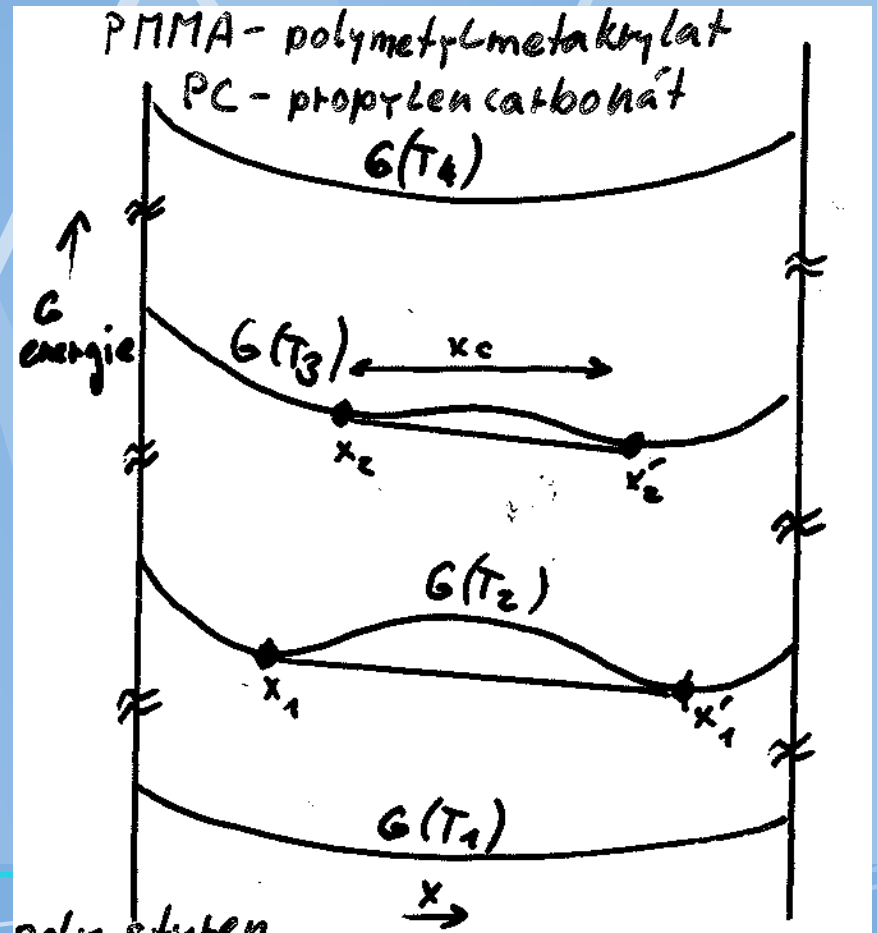 PMMA - polymetylmetakrylat
PC - propylencarbonát
G(T₄)
G
energie
G(T₃)
xc
x₂
x₂′
G(T₂)
x₁
x₁′
G(T₁)
x